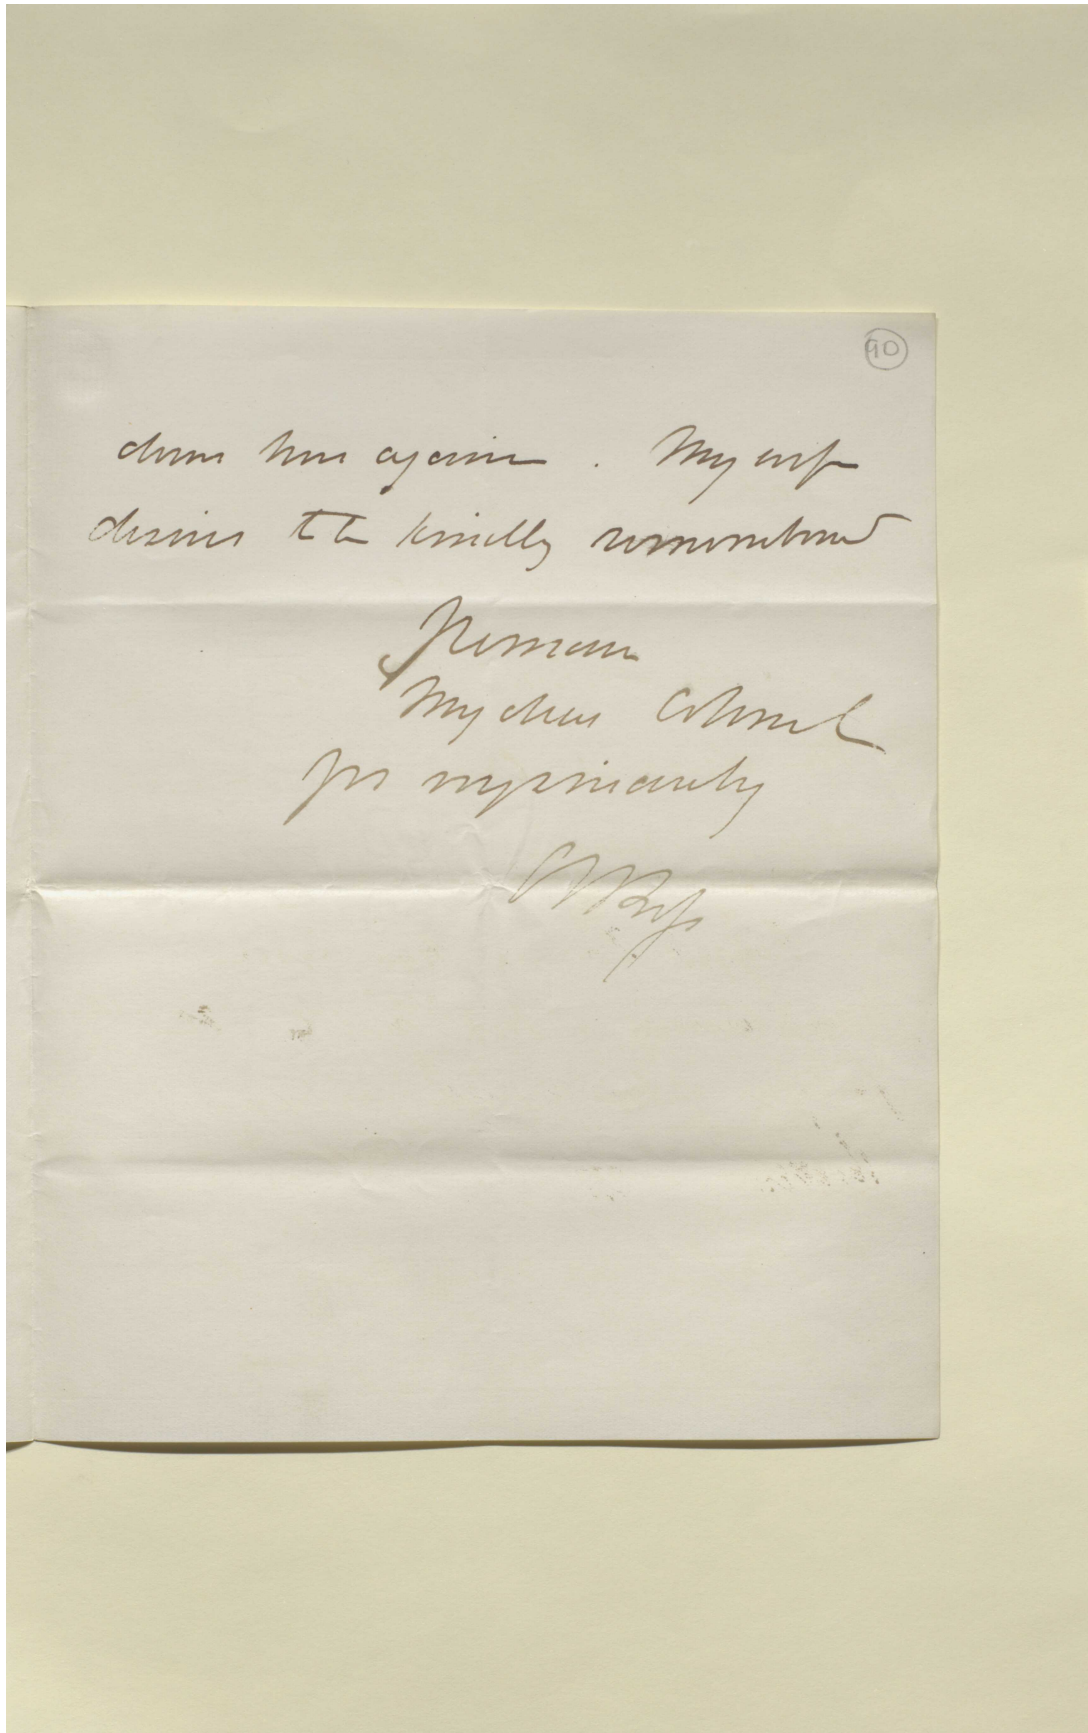 90
down here again. My wife
desires to be kindly remembered
I remain
My dear Colonel
Yrs very sincerely